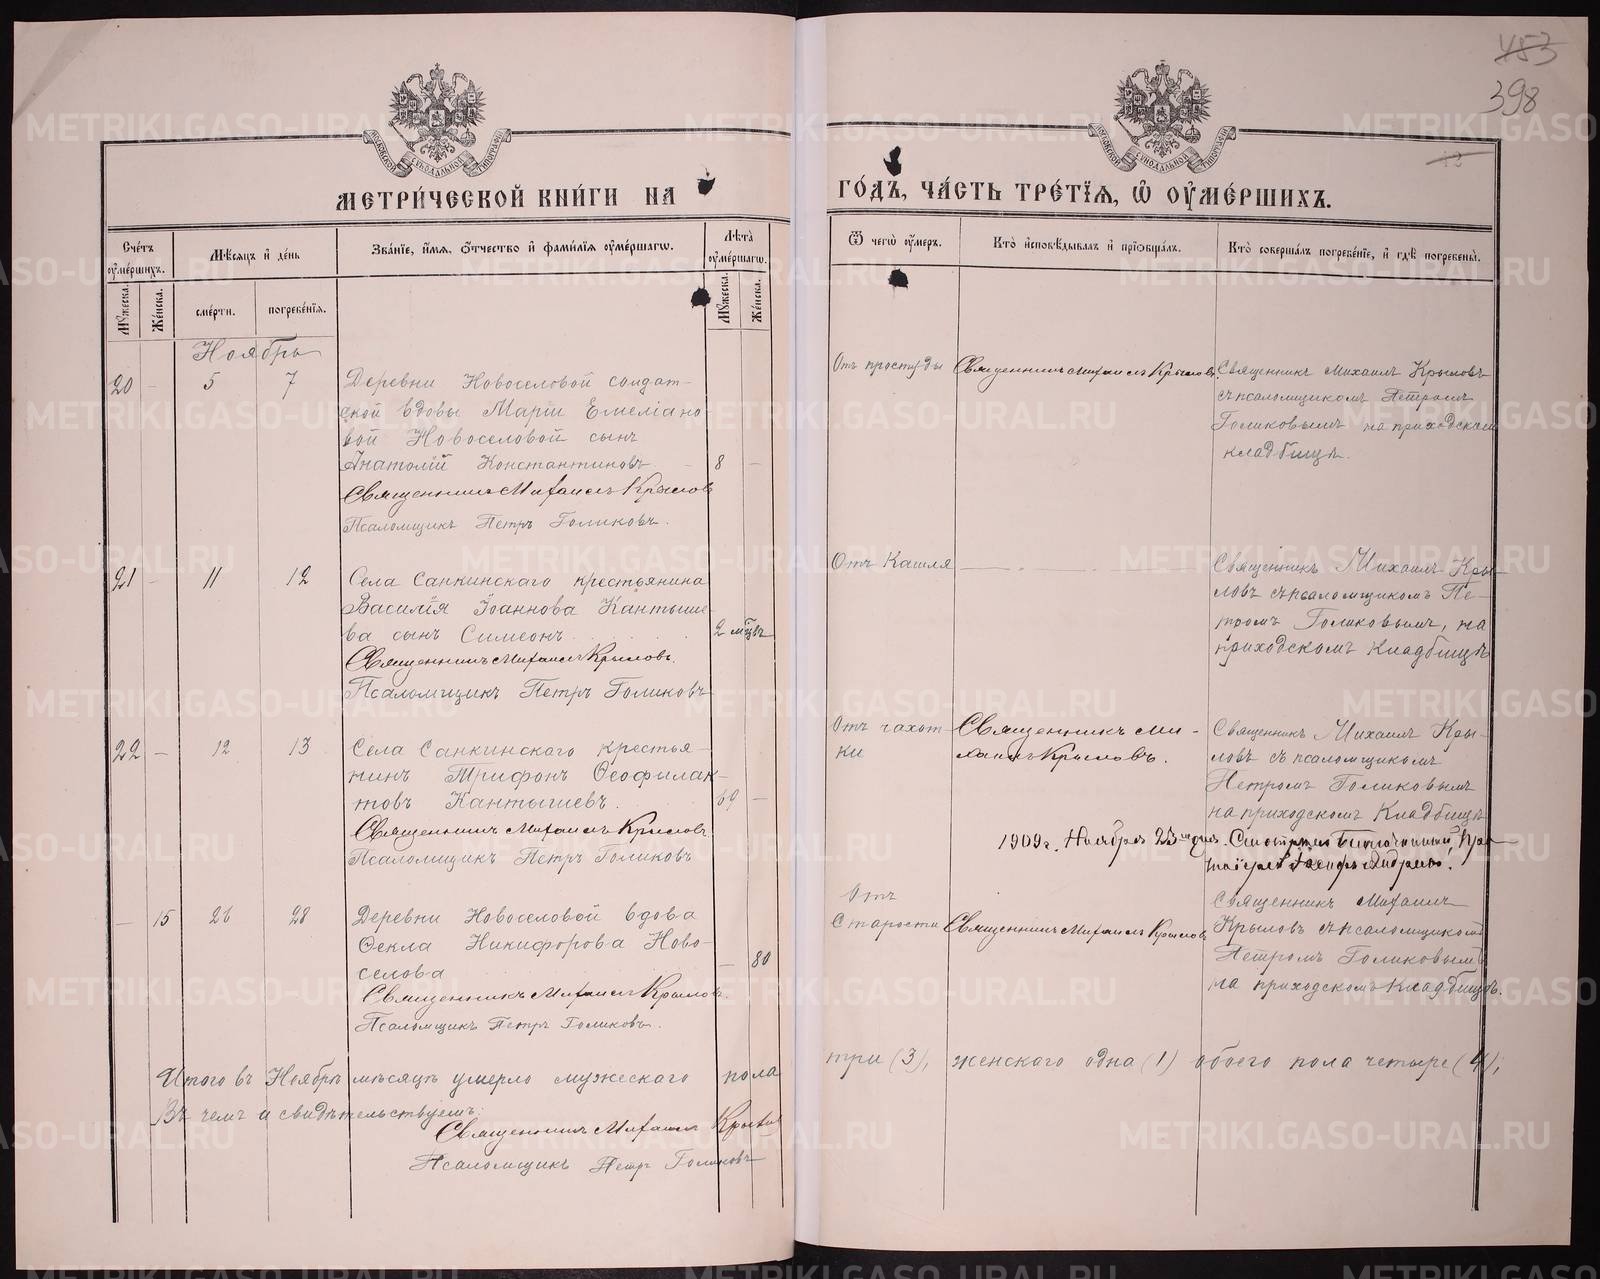 453
398
МЕТРИ́ЧЕСКОЙ КНИ́ГИ НА
ГО́ДЪ, ЧА́СТЬ ТРЕ́ТЇѦ, Ѡ҆ ОУ҆МЕ́РШИХЪ.
Сче́тъ оу҆ме́ршихъ.
Мѣ́сяцъ и҆ де́нь
Зва́нїе, и҆́мя, ѻ҆́тчество и҆ фами́лїя оу҆ме́ршагѡ.
Лѣ́та оу҆ме́ршагѡ.
Му́жеска.
Же́нска.
сме́рти.
погребе́нїя.
Му́жеска.
Же́нска.
Ѿ чегѡ̀ оу҆́меръ.
Кто̀ и҆сповѣ́дывалъ и҆ прїѻбща́лъ.
Кто̀ соверша́лъ погребе́нїе, и҆ гдѣ̀ погребены̀.
Ноябрь
20 - 5 7
Деревни Новоселовой солдат-
ской вдовы Марiи Емелiано-
вой Новоселовой сынъ
Анатолiй Константиновъ - 8 -
Священникъ Михаилъ Крыловъ
Псаломщикъ Петръ Голиковъ.
Отъ простуды
Священникъ Михаилъ Крыловъ.
Священникъ Михаилъ Крыловъ
съ псаломщикомъ Петромъ
Голиковымъ на приходскомъ
кладбищѣ.
21 - 11 12
Села Санкинскаго крестьянина
Василiя Iоаннова Кантыше-
ва сынъ Симеонъ 2 мѣцъ
Священникъ Михаилъ Крыловъ.
Псаломщикъ Петръ Голиковъ
Отъ Кашля
Священникъ Михаилъ Кры-
ловъ съ псаломщикомъ Пе-
тромъ Голиковымъ, на
приходскомъ кладбищѣ
22 - 12 13
Села Санкинскаго крестья-
нинъ Трифонъ Ѳеофилак-
товъ Кантышевъ. 69 -
Священникъ Михаилъ Крыловъ
Псаломщикъ Петръ Голиковъ
Отъ чахот-
ки
Священникъ Ми-
хаилъ Крыловъ.
Священникъ Михаилъ Кры-
ловъ съ псаломщикомъ
Петромъ Голиковымъ
на приходскомъ Кладбищѣ
1909 г. Ноября 25 дня. Смотрѣлъ Благочинный, Про-
- 15 26 28
Деревни Новоселовой вдова
Ѳекла Никифорова Ново-
селова - 80
Священникъ Михаилъ Крыловъ.
Псаломщикъ Петръ Голиковъ.
Отъ
Старости
Священникъ Михаилъ Крыловъ
Священникъ Михаилъ
Крыловъ съ псаломщикомъ
Петромъ Голиковымъ
на приходскомъ кладбищѣ.
Итого въ Ноябрѣ мѣсяцѣ умерло мужескаго пола три (3), женскаго одна (1) обоего пола четыре (4);
Въ чемъ и свидѣтельствуемъ:
Священникъ Михаилъ Крыловъ
Псаломщикъ Петръ Голиковъ
METRIKI.GASO-URAL.RU